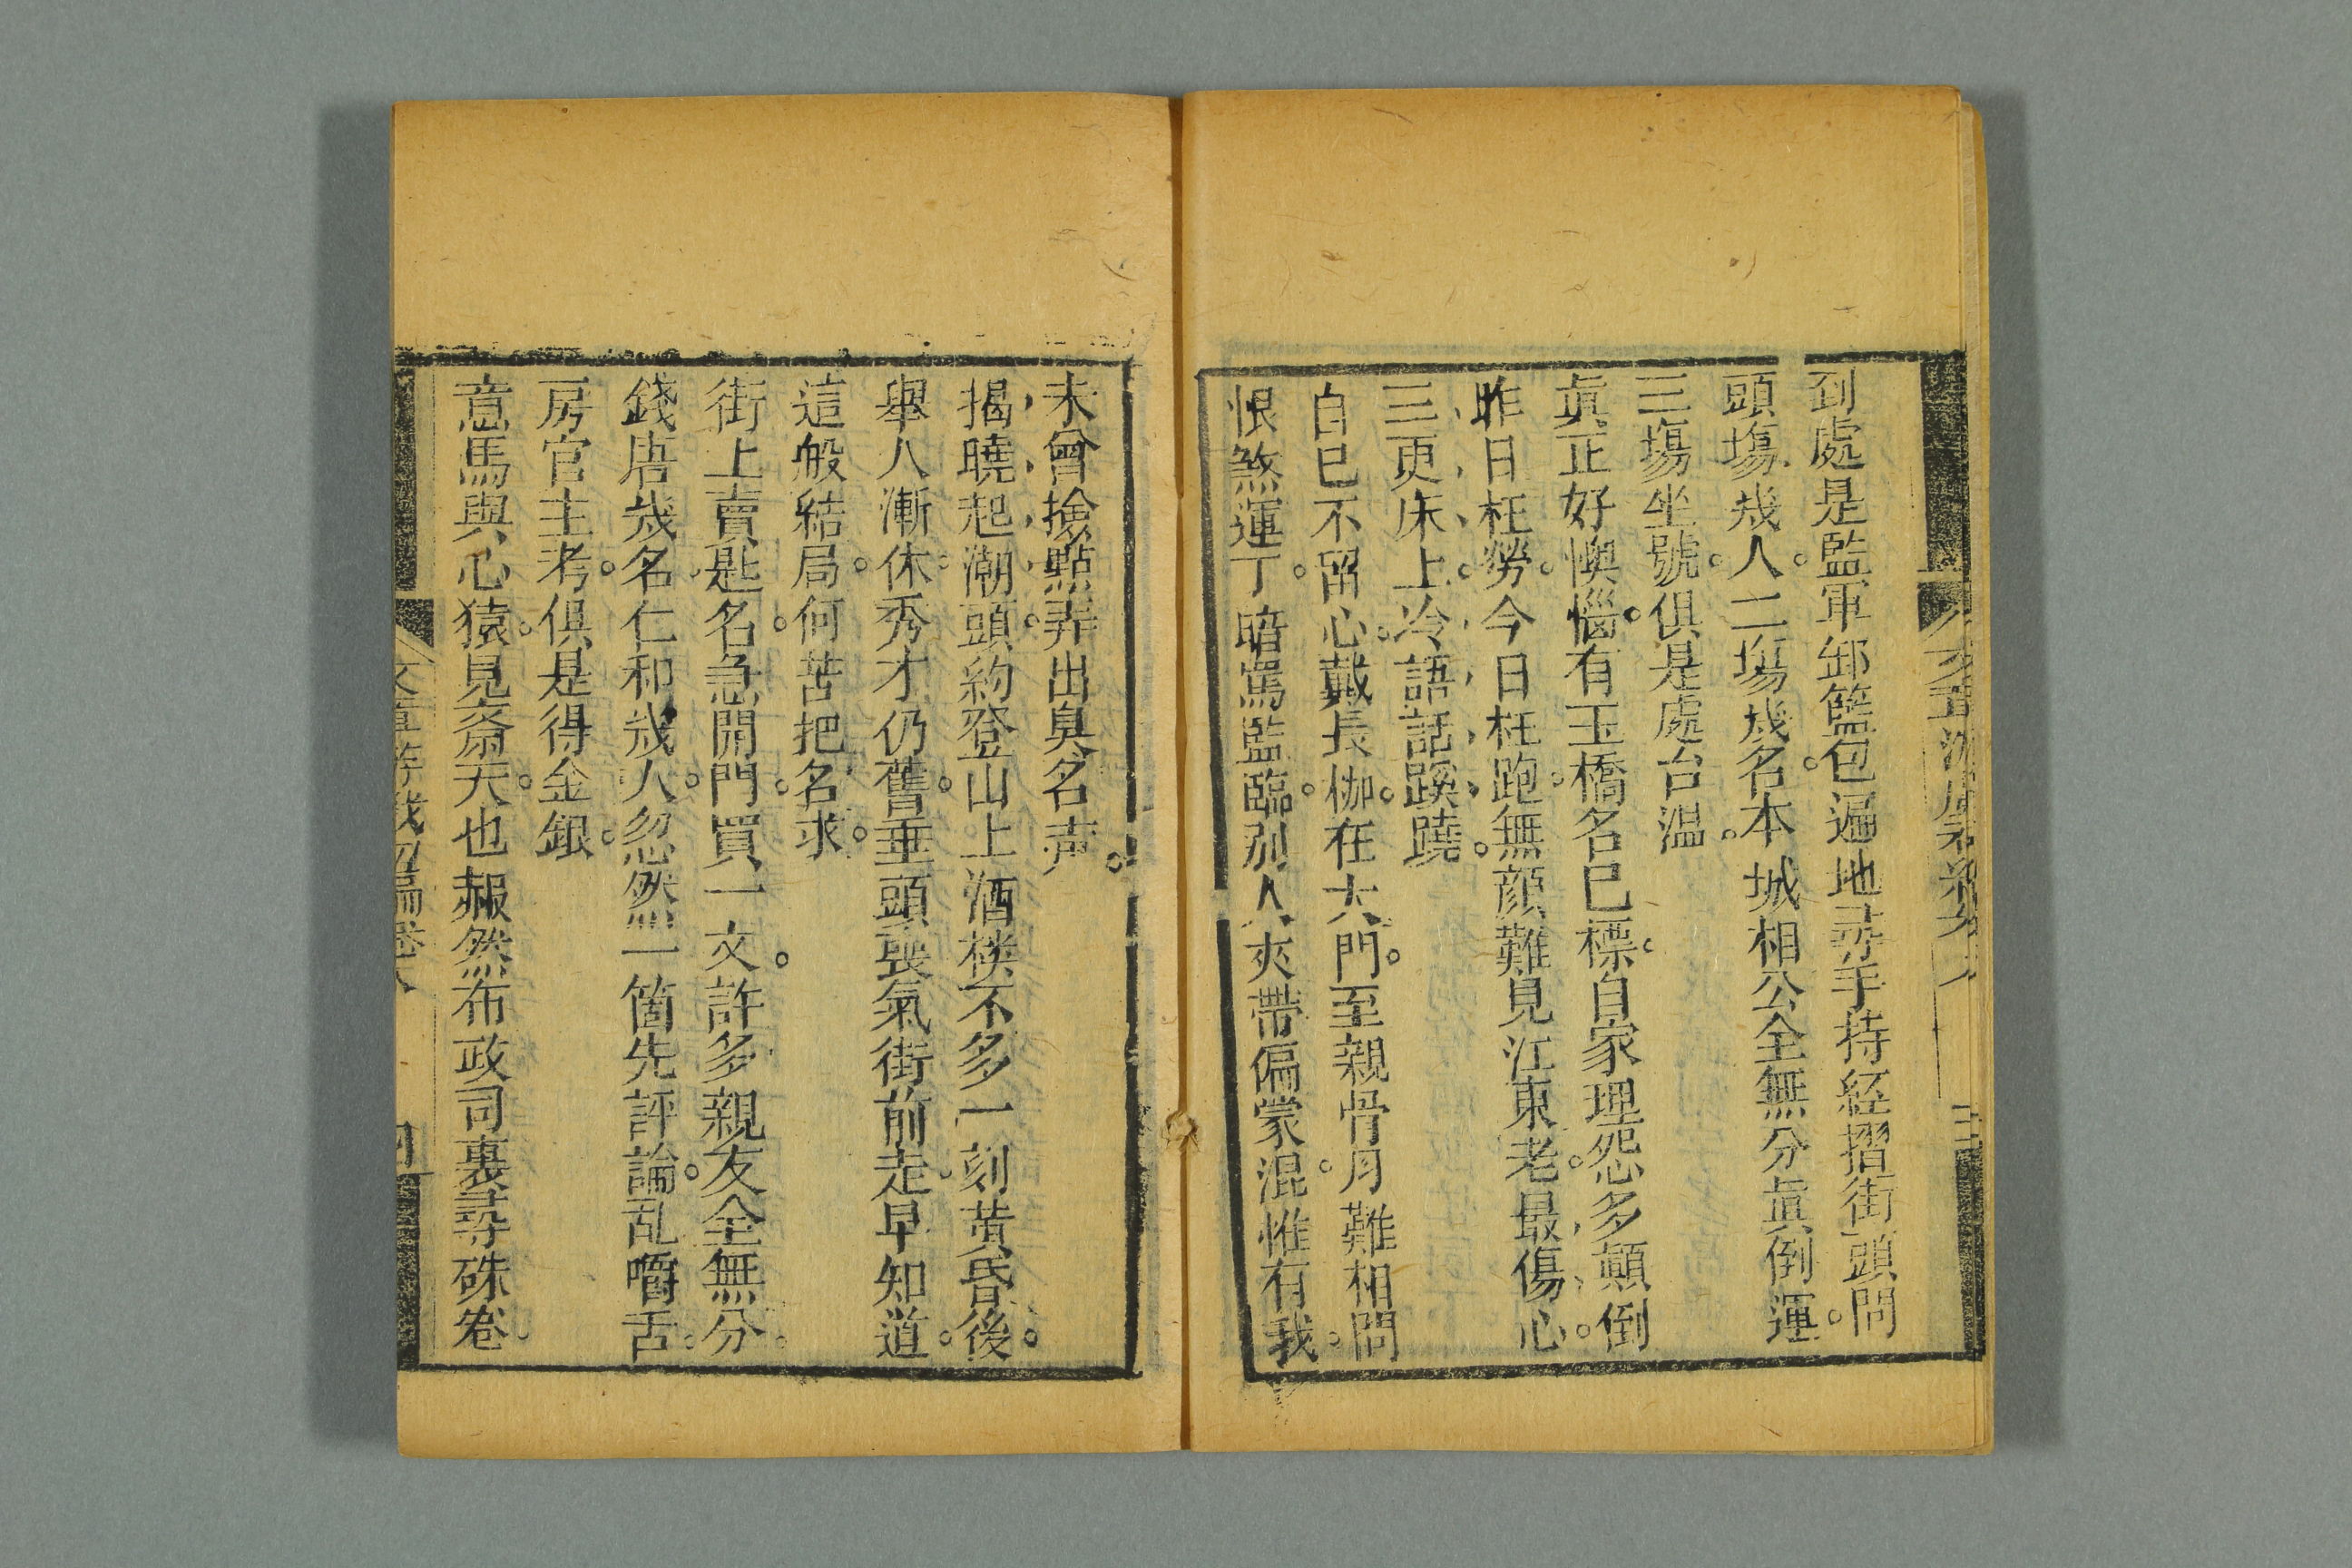 到處是監軍卸籃包遍地尋手持経摺街頭問
頭塲㡬人。二塲㡬名。本城相公全無分眞倒運。
三塲坐號。俱是處台温。
眞正好懊惱。有玉橋名已標。自家埋怨多顛倒
昨日枉勞。今日枉跑。無顔難見江東老。最傷心。
三更床上。冷語話蹊蹺。
自已不留心。戴長枷。在大門。至親骨月難相問
恨煞運丁。暗罵監臨。别人夾帶偏蒙混。惟有我。
未曾撿㸃弄出臭名声。
揭曉起潮頭。約登山上酒楼不多一刻黄昏後。
舉人漸休。秀才仍舊。垂頭喪氣街前走。早知道。
這般結局。何苦把名求。
街上賣匙名。急開門。買一文。許多親友全無分。
錢唐㡬名。仁和㡬人。忽然一箇先評論。乱嚼舌。
房官主考。俱是得金銀。
意馬與心猿。見齋天。也赧然布政司裏尋硃卷。